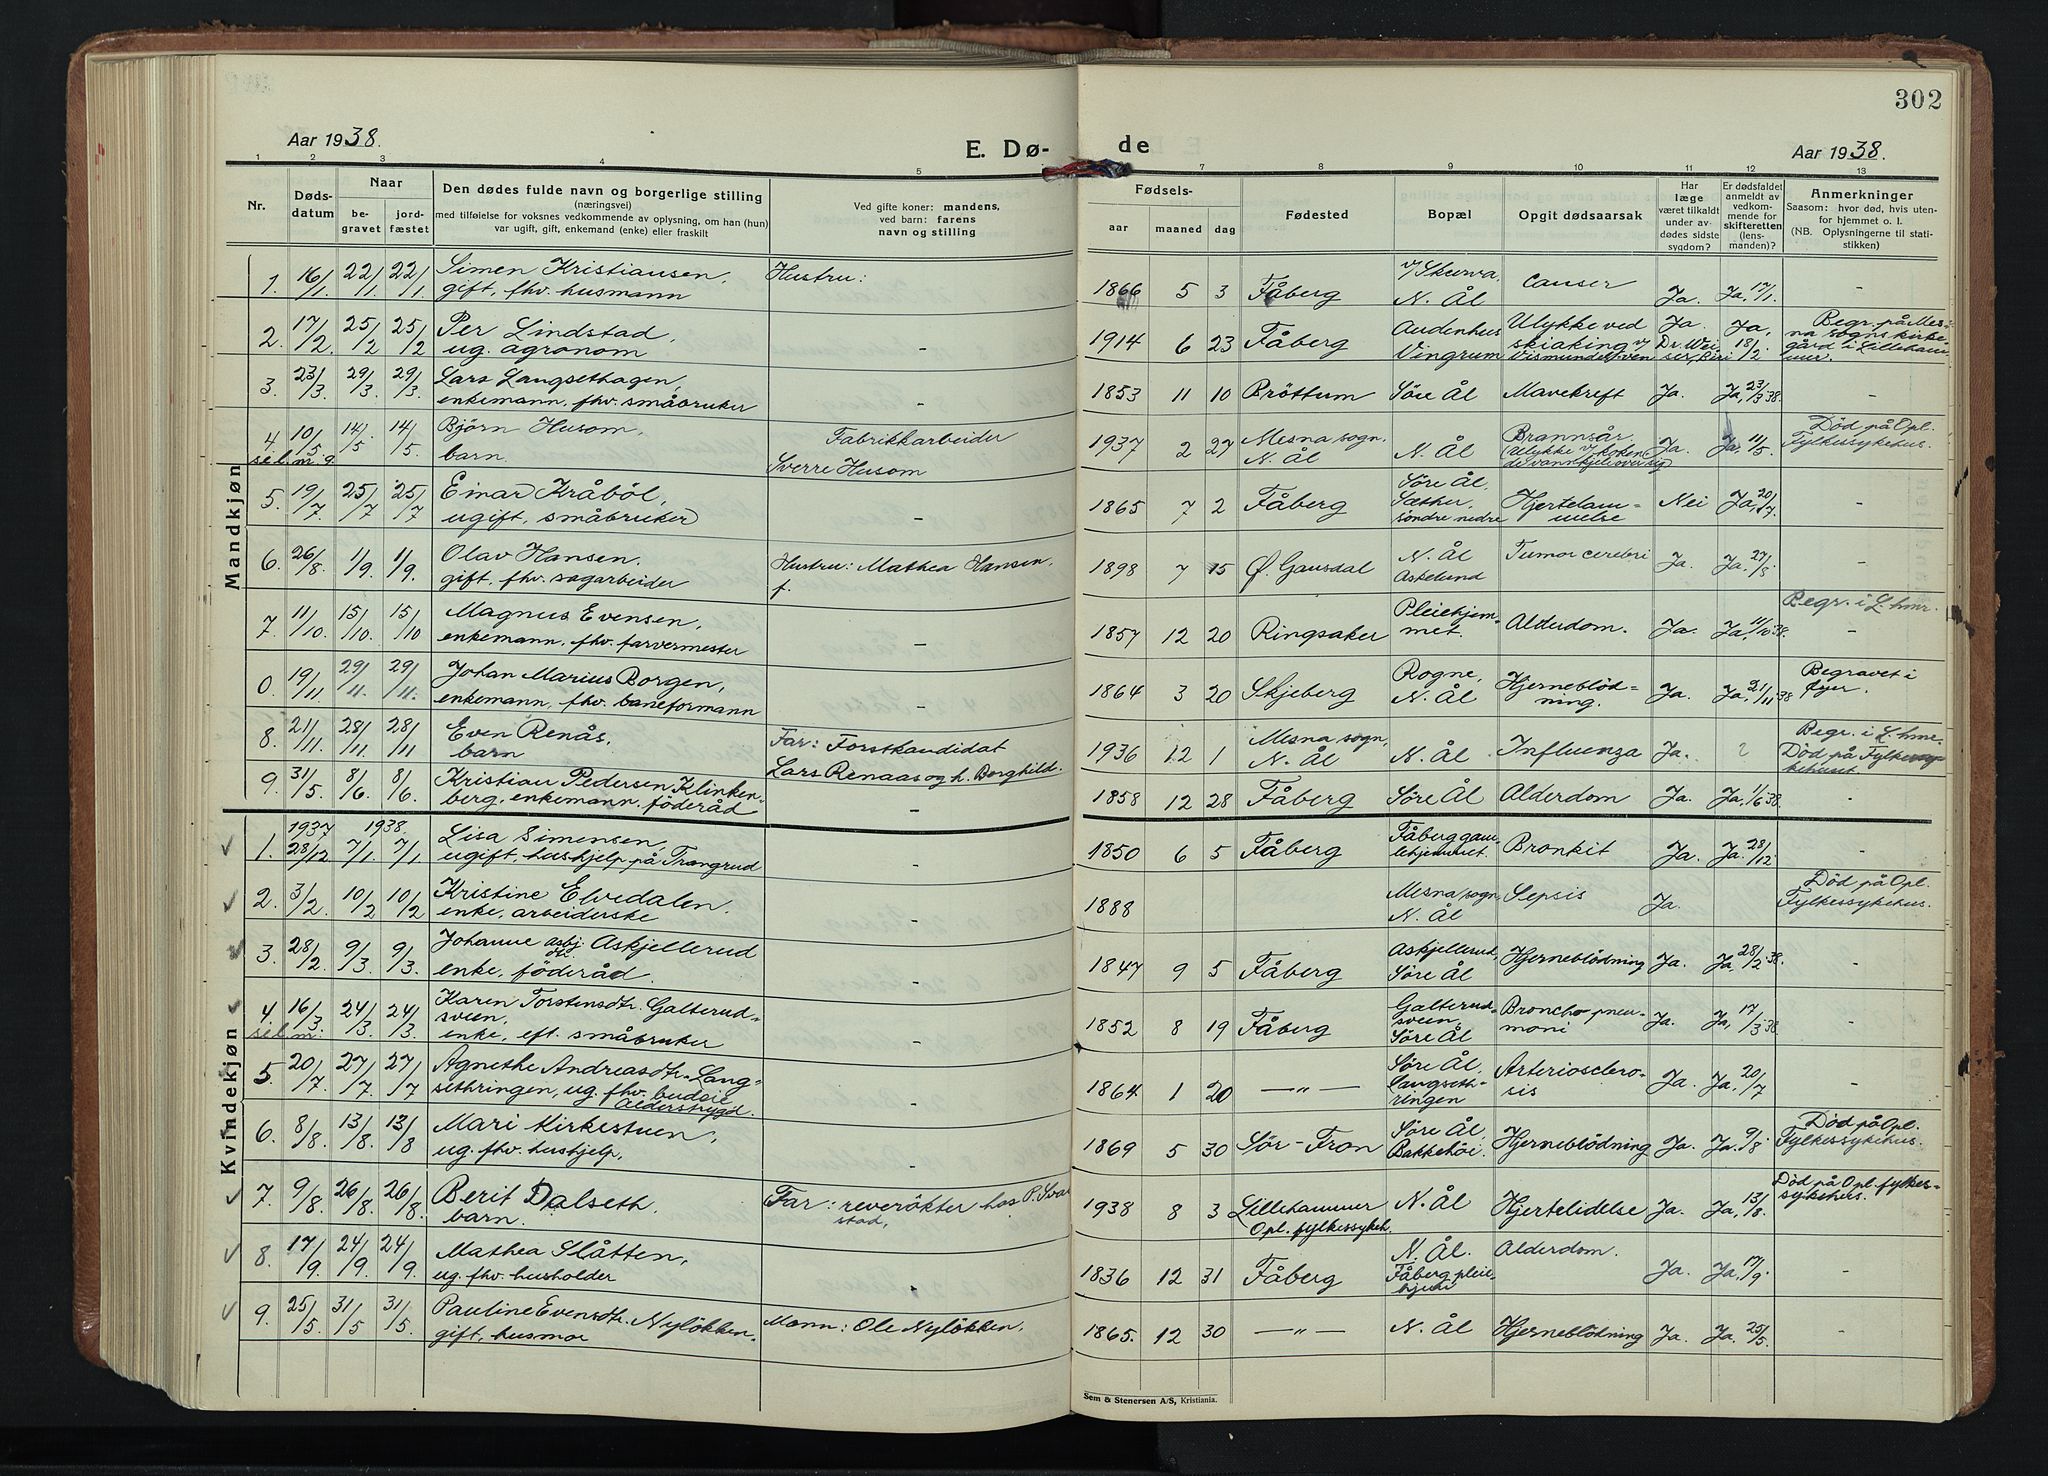 302
Aar 1938.
E. Dø-
de
Aar 1938.
1 2 3 4 5 7 8 9 10 11 12 13
Nr.
Døds-
datum
Naar
be-
gravet
jord-
fæstet
Den dødes fulde navn og borgerlige stilling
(næringsvei)
med tilføielse for voksnes vedkommende av oplysning, om han (hun)
var ugift, gift, enkemand (enke) eller fraskilt
Ved gifte koner: mandens,
ved barn: farens
navn og stilling
Fødsels-
aar maaned dag
Fødested
Bopæl
Opgit dødsaarsak
Har
læge
været tilkaldt
under av-
dødes sidste
sygdom?
Er dødsfaldet
anmeldt av
vedkom-
mende for
skifteretten
(lens-
manden)?
Anmerkninger
Saasom: hvor død, hvis uten-
for hjemmet o. l.
(NB. Oplysningerne til stati-
stikken)
Mandkjøn
1. 16/1 22/1 22/1 Simen Kristiansen, Hustru:
gift, fhv. husmann
1866 5 3 Fåberg v/ Skurva, N. Ål Canser Ja. Ja, 17/1. -
2. 17/2 25/2 25/2 Per Lindstad,
ug. agronom -
1914 6 23 Fåberg Audenhus Vingrum Ulykke ved skiaking v/ Vismundelven Ja. Dr. Weiser, Biri Ja, 18/2. Begr. på Mesna sogns kirkegård i Lillehammer.
3. 23/3 29/3 29/3 Lars Langsethagen,
enkemann, fhv. småbruker -
1853 11 10 Bröttum Söre Ål Mavekreft Ja. Ja, 23/3 38. -
4. 10/5 14/5 14/5 Björn Husom, Fabrikkarbeider
selm. 9 barn. Sverre Husom
1937 2 27 Mesna sogn. N. Ål N. Ål Brannsår. (Ulykke v/ kokende vannkjel over sig) Ja. Ja, 11/5. Död på Opl. Fylkessykehus.
5. 19/7 25/7 25/7 Einar Kråböl,
ugift, småbruker -
1865 7 2 Fåberg Söre Ål, Sæther, söndre nedre Hjertelammelse Nei Ja, 20/7. -
6. 26/8 1/9. 1/9. Olav Hansen. Hustru: Mathea Hansen,
gift, fhv. sagarbeider f.
1898 7 15 Ö. Gausdal N. Ål Askelund Tumor cerebri Ja Ja. 27/8 -
7. 11/10. 15/10 15/10 Magnus Evensen,
enkemann, fhv. farvermester -
1857 12 20 Ringsaker Pleiehjemmet. Alderdom. Ja. Ja, 11/10 38. Begr. i L.hmr. -
0. 19/11 29/11. 29/11. Johan Marius Borgen,
enkemann, fhv. baneformann -
1864 3 20 Skjeberg Rogne, N. Ål Hjerneblödning. Ja. Ja, 21/11 38 Begravet i Öyer.
8. 21/11. 28/11 28/11 Even Renås, Far: Forstkandidat
barn Lars Renaas og h. Borghild.
1936 12 1 Mesna sogn, N. Ål N. Ål Influenza Ja. ? Begr. i L.hmr. Död på Fylkessykehuset.
9. 31/5. 8/6. 8/6. Kristian Pedersen Klinken-
berg, enkemann, föderåd -
1858 12 28 Fåberg Söre Ål Alderdom Ja. Ja, 1/6 38. -
Kvindekjøn
1937 1938.
1. 28/12 7/1 7/1 Lisa Simensen,
ugift, hushjelp på Trangrud -
1850 6 5 Fåberg Fåberg gamlehjemmet. Bronkit Ja. Ja. 28/12. -
2. 3/2. 10/2 10/2 Kristine Elvedalen.
enke, arbeiderske -
1888 Mesna sogn, N. Ål Sepsis Ja. Död på Opl. Fylkessykehus.
3. 28/2 9/3 9/3. Johanne Asbj.dtr. Askjellerud
enke, föderåd. -
1847 9 5 Fåberg Askjellerud, Söre Ål Hjerneblödning Ja. Ja, 28/2 38. -
4 16/3 24/3. 24/3. Karen Torstensdtr. Galterud-
selm. sveen,
enke, eft. småbruker -
1852 8 19 Fåberg Galterudsveen, Söre Ål Bronchopneumoni Ja. Ja, 17/3 38. -
5. 20/7 27/7. 27/7 Agnethe Andreasdtr. Lang-
sethringen, ug. fhv. budeie
Alderstrygd. -
1864 1 20 —"— Söre Ål Langsethringen Arteriosclerosis Ja. Ja, 20/7 -
6. 8/8. 13/8. 13/8 Mari Kirkestuen,
ug. fhv. hushjelp, -
1869 5 30 Sör-Fron Söre Ål Bakkehöi. Hjerneblödning Ja. Ja. 9/8 Död på Opl. Fylkessykehus.
7. 9/8. 26/8 26/8. Berit Dalseth. Far: reverökter hos P. Svar
barn. stad,
1938 8 3 Lillehammer Opl. fylkessykeh. N. Ål Hjertelidelse Ja. Ja, 13/8. Död på Opl. fylkessykehus.
8. 17/9. 24/9. 24/9. Mathea Slåtten,
ug. fhv. husholder -
1836 12 31 Fåberg N. Ål. Fåberg pleiehjem Alderdom. Ja. Ja, 17/9. -
9. 25/5. 31/5 31/5. Pauline Evensdtr. Nylökken- Mann: Ole Nylökken,
gift, husmor
1865. 12 30 —"— N. Ål Hjerneblödning Ja. Ja. 25/5. -
Sem & Stenersen A/S, Kristiania.